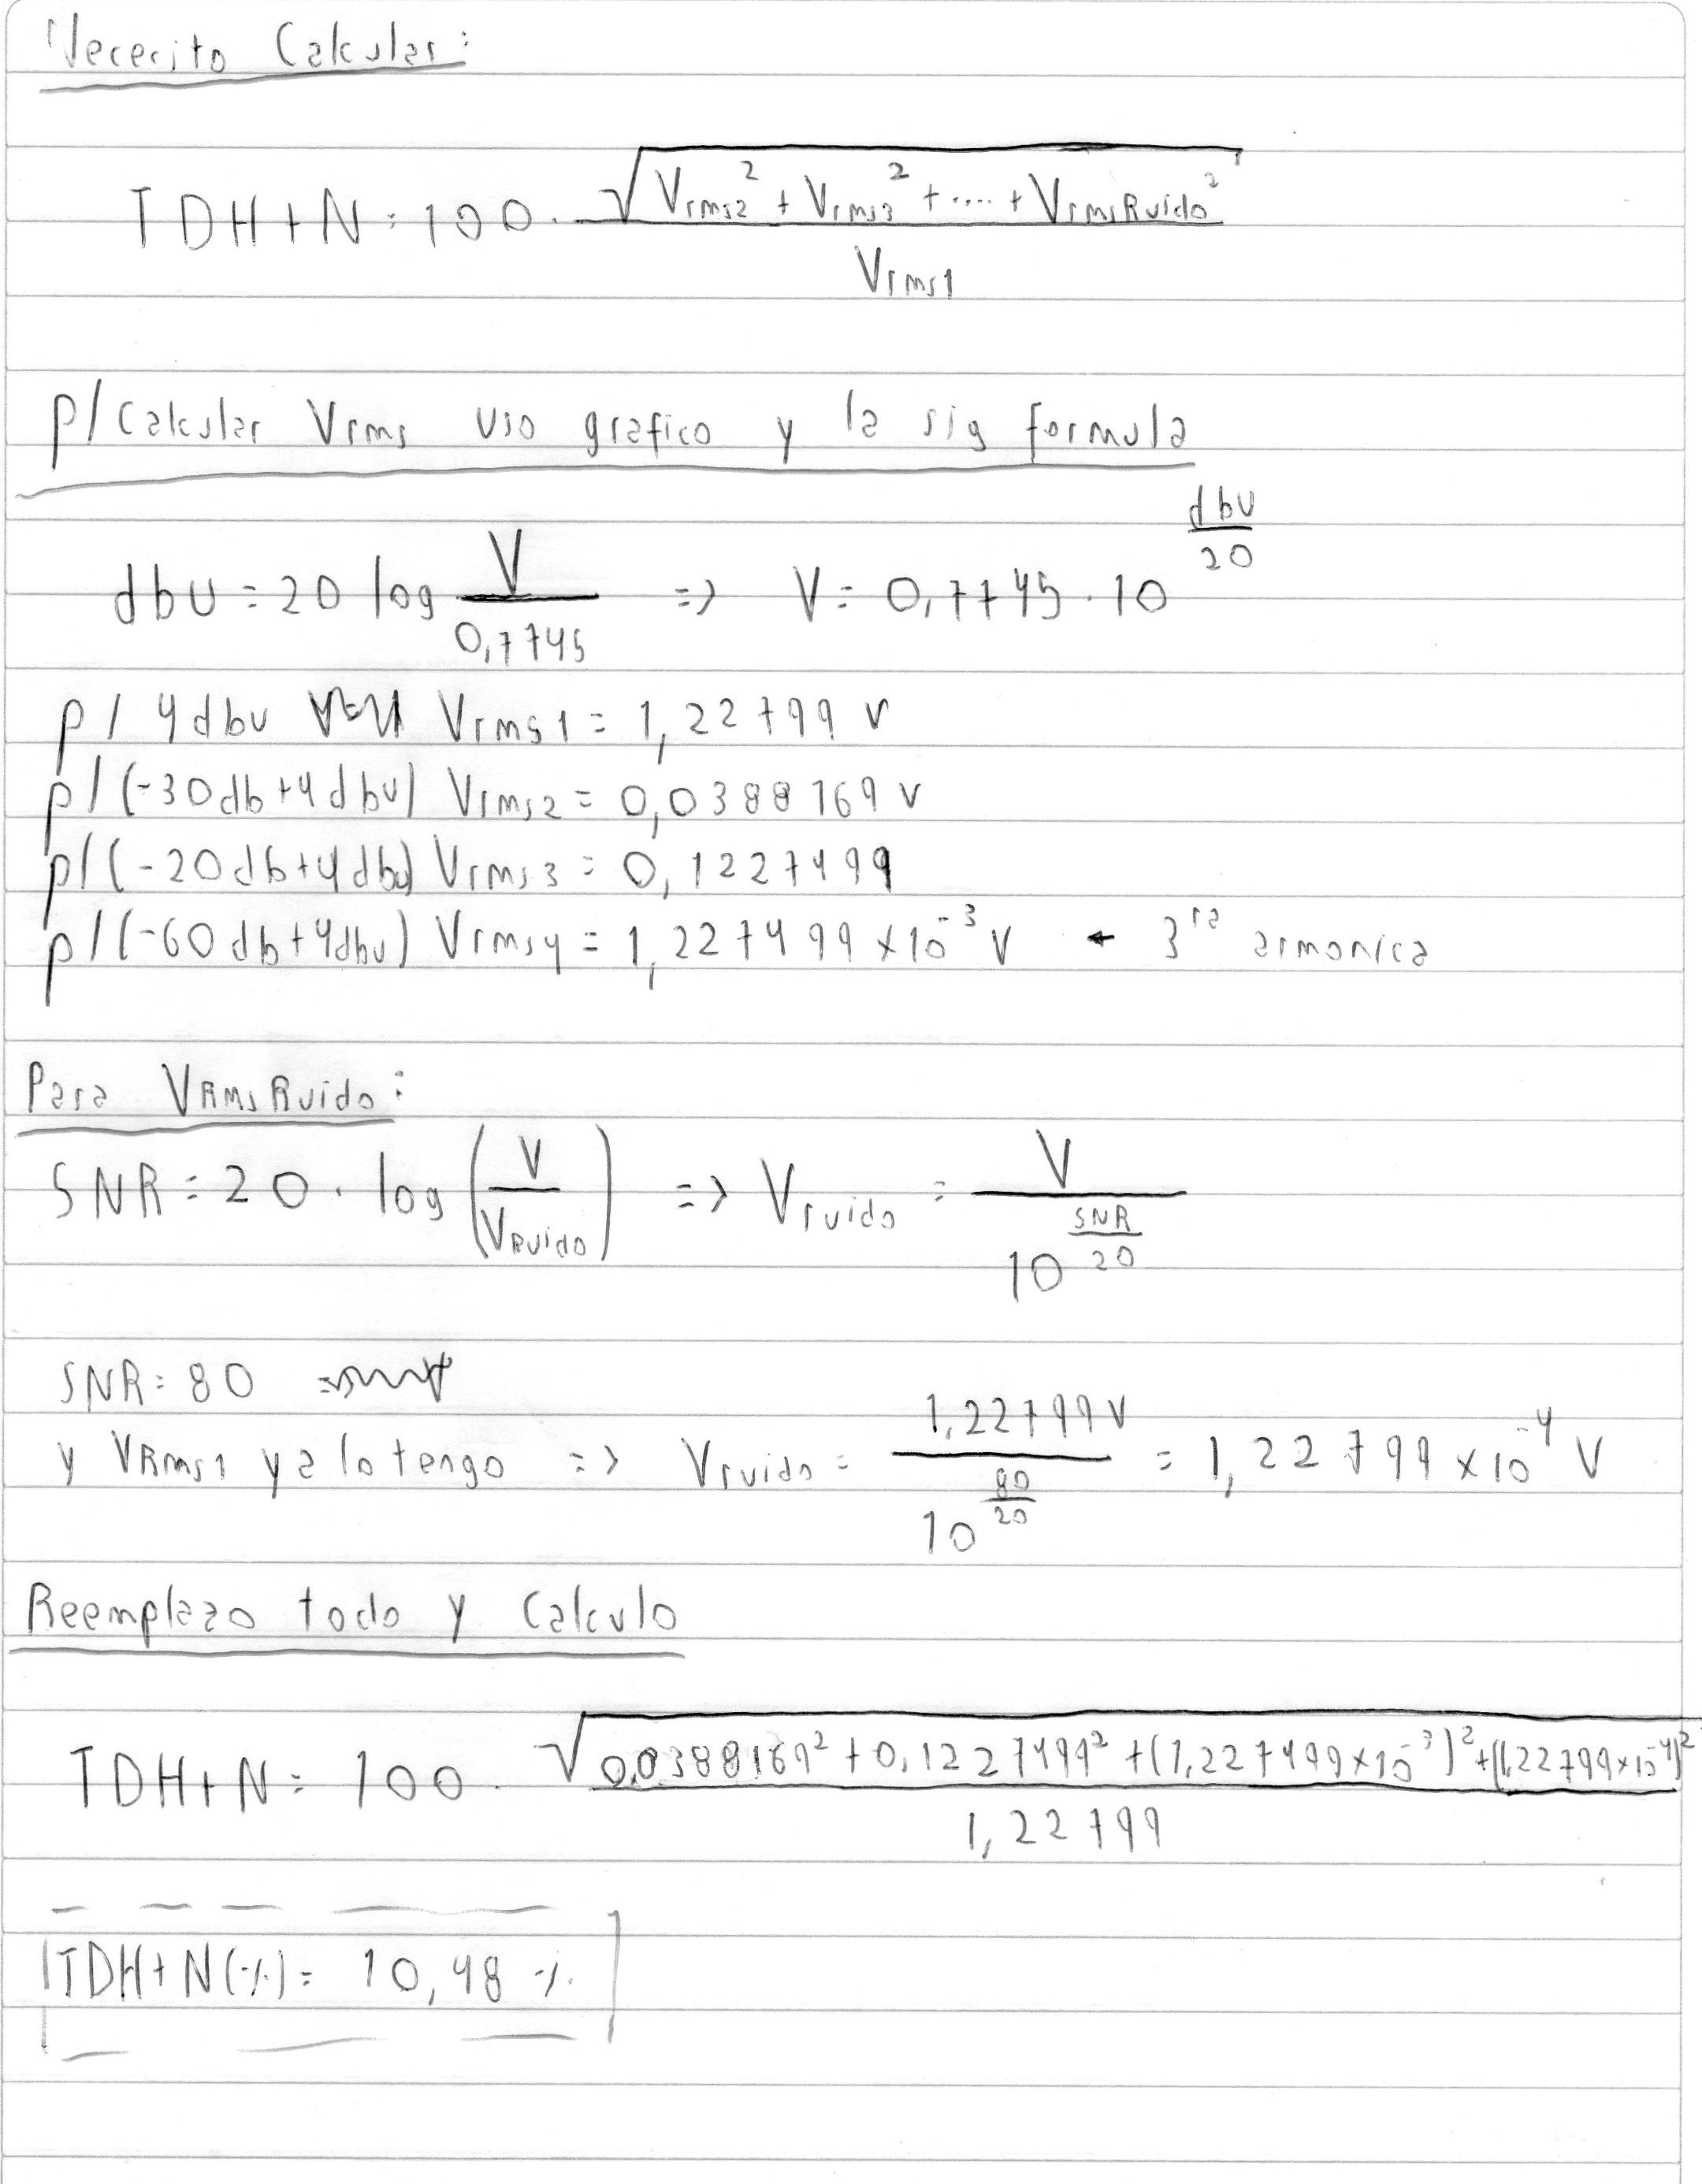 Nececito Calcular:
TDH+N = 100 · √(Vrms2² + Vrms3² + .... + VrmsRuido²) / Vrms1
p/ Calcular Vrms uso grafico y la sig formula
dbu = 20 log V / 0,7745 => V = 0,7745 · 10^(dbu/20)
p/ 4dbu Vrms1 = 1,22799 v
p/(-30db+4dbu) Vrms2 = 0,0388169 v
p/(-20db+4dbu) Vrms3 = 0,1227499
p/(-60db+4dbu) Vrms4 = 1,227499 x10⁻³ V ← 3ra armonica
Para VRMsRuido:
SNR = 20 · log (V / VRuido) => Vruido = V / 10^(SNR/20)
SNR = 80
y VRms1 ya lo tengo => Vruido = 1,22799V / 10^(80/20) = 1,22799 x10⁻⁴ V
Reemplazo todo y Calculo
TDH+N = 100 · √(0,0388169² + 0,1227499² + (1,227499x10⁻³)² + (1,22799x10⁻⁴)²) / 1,22799
TDH+N(%) = 10,48 %